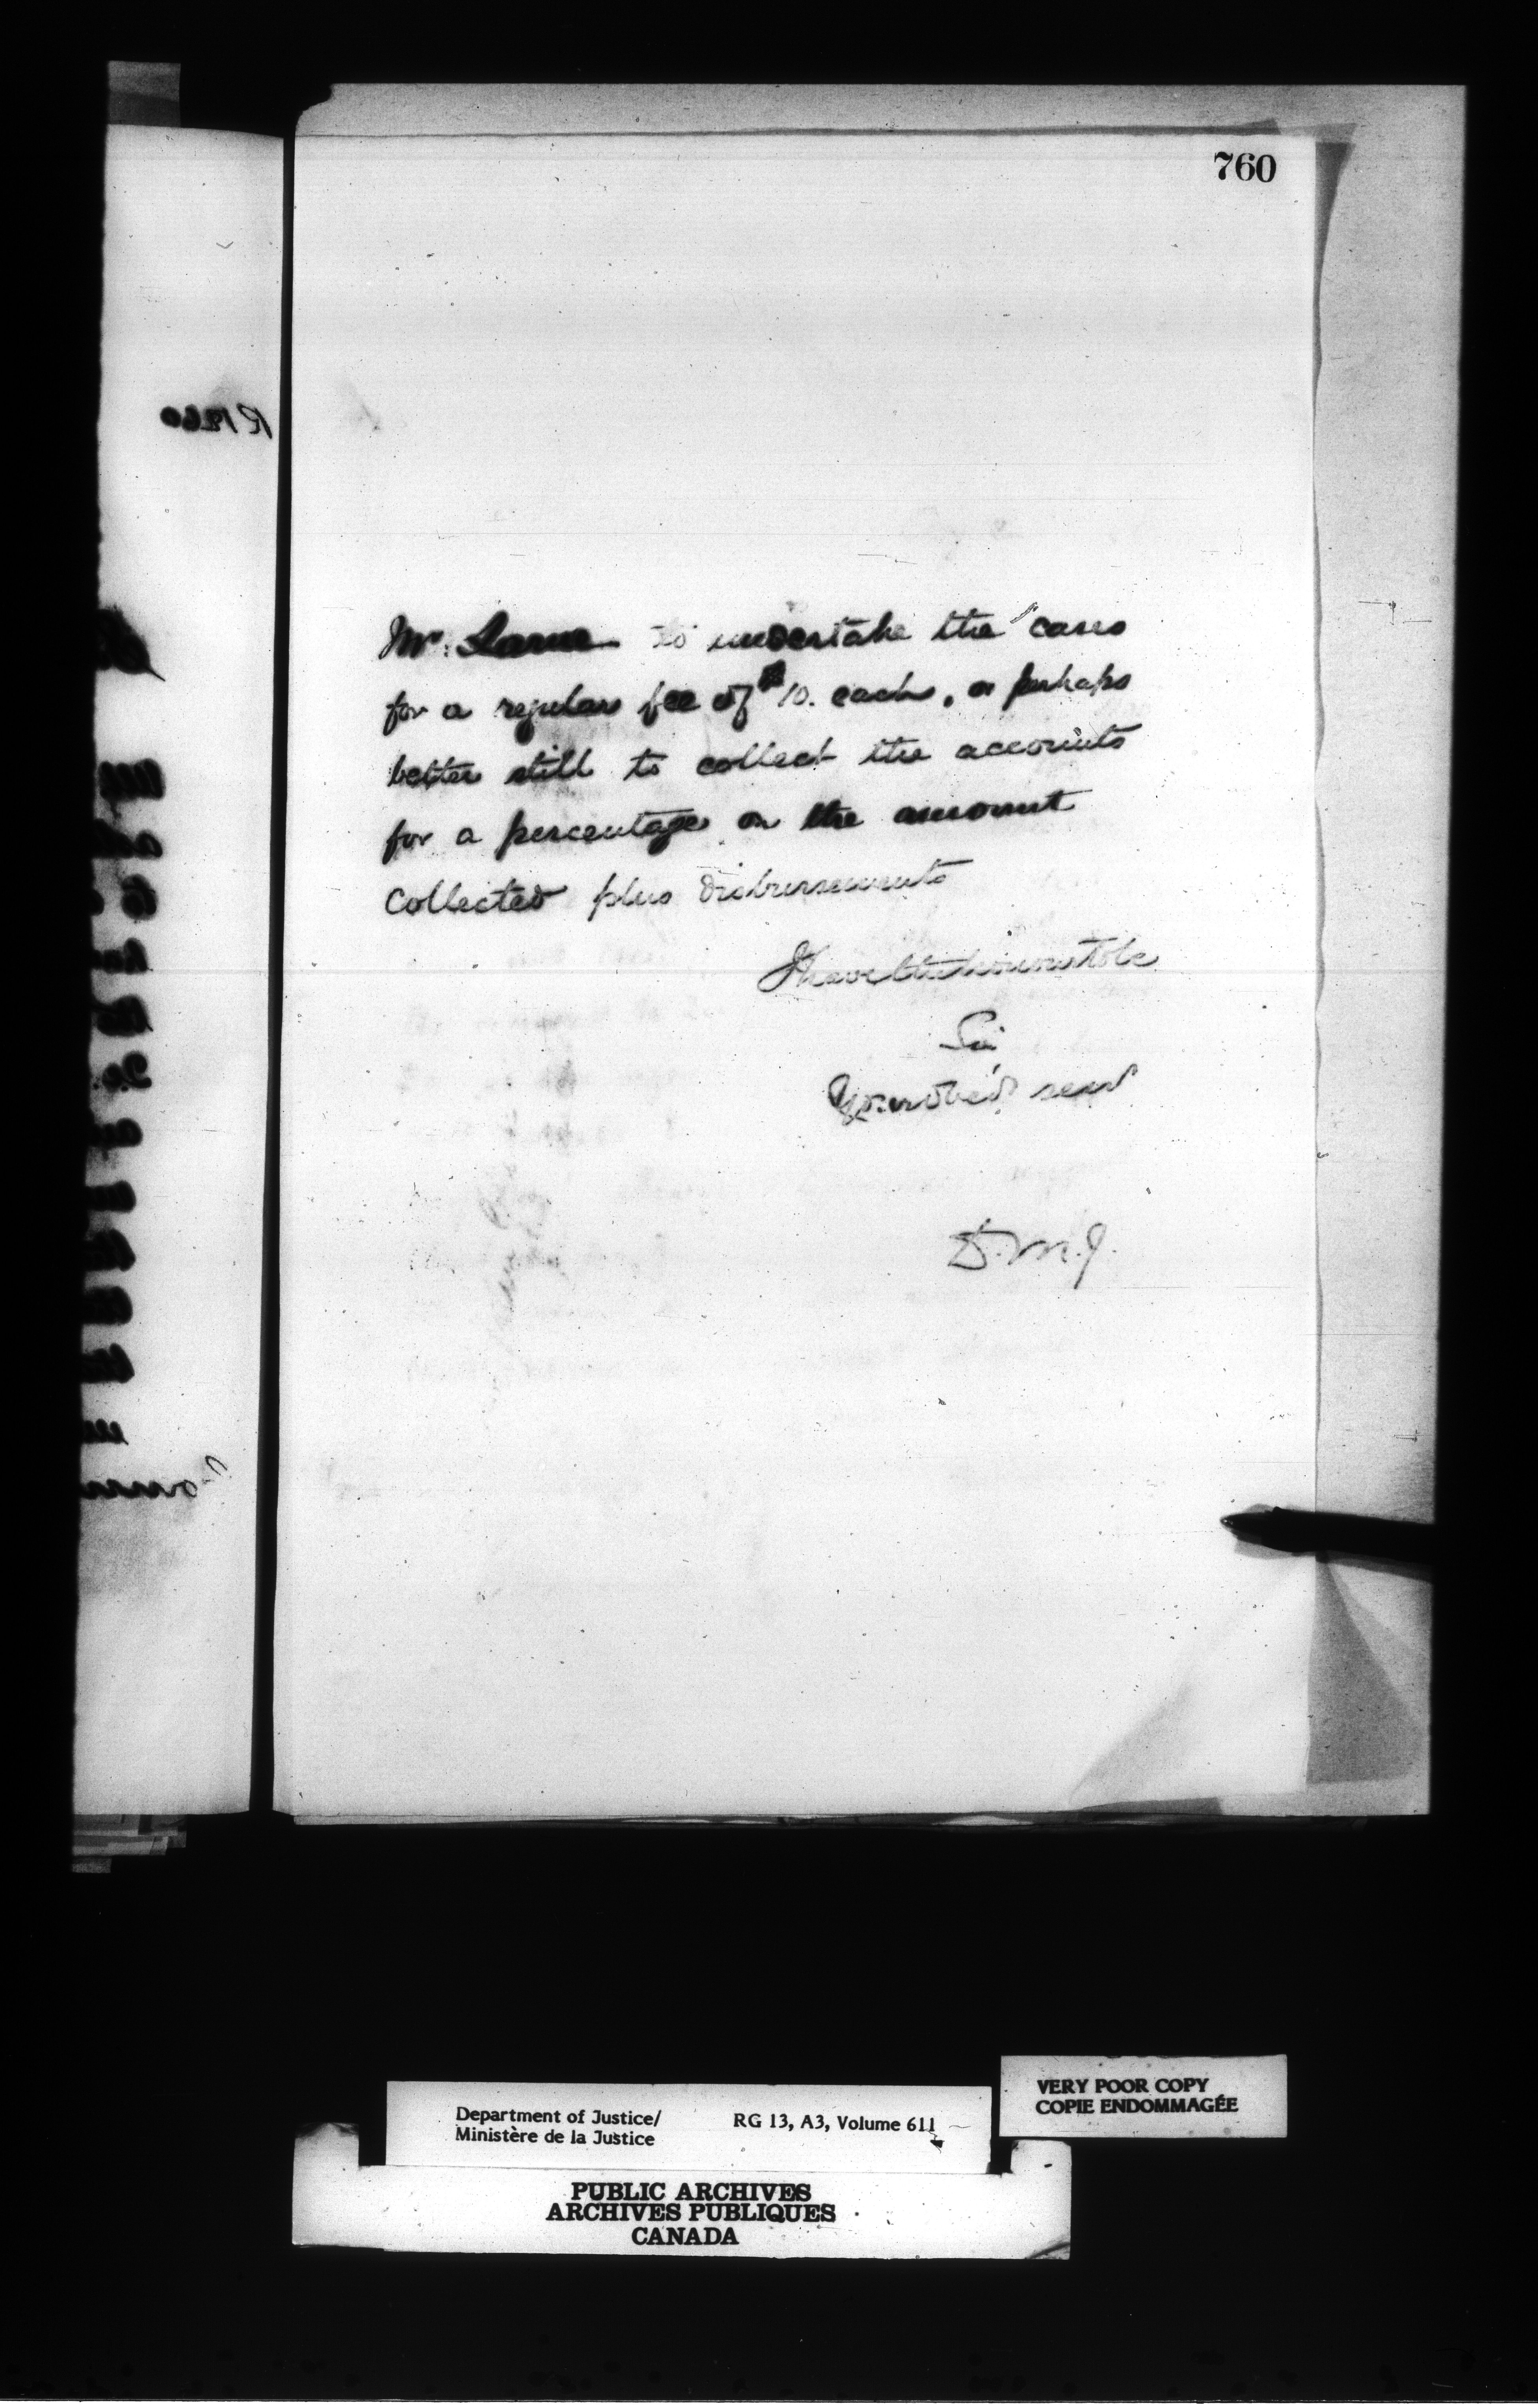 760
Mr. Larue to undertake the cases
for a regular fee of $10. each, or perhaps
better still to collect the accounts
for a percentage on the amount
collected plus disbursements
I have the honour to be
Sir
Your obed serv
D.M.J.
Department of Justice/
Ministère de la Justice
RG 13, A3, Volume 611
VERY POOR COPY
COPIE ENDOMMAGÉE
PUBLIC ARCHIVES
ARCHIVES PUBLIQUES
CANADA